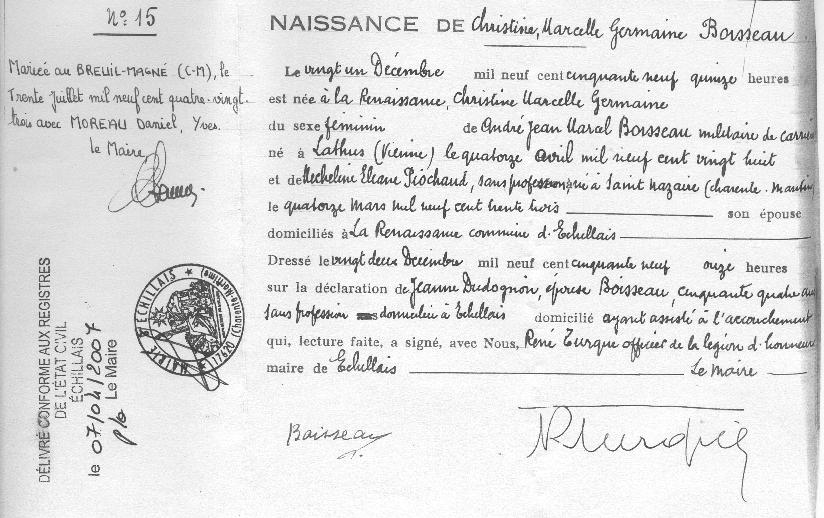 Nº 15
Mariée au BREUIL-MAGNÉ (C-M), le
Trente Juillet mil neuf cent quatre-vingt
trois avec MOREAU Daniel, Yves.
le Maire
DÉLIVRÉ CONFORME AUX REGISTRES
DE L'ÉTAT CIVIL
ÉCHILLAIS
le 07/04/2007
p/o Le Maire
MAIRIE D'ÉCHILLAIS
17620 (Charente-Maritime)
NAISSANCE DE Christine, Marcelle Germaine Boisseau
Le vingt un Décembre mil neuf cent cinquante neuf quinze heures
est née à la Renaissance, Christine Marcelle Germaine
du sexe féminin de André Jean Maral Boisseau militaire de carrière
né à Lathus (Vienne) le quatorze avril mil neuf cent vingt huit
et de Micheline Eliane Piochaud, sans profession, née à Saint Nazaire (Charente-Maritime)
le quatorze mars mil neuf cent trente trois son épouse
domiciliés à La Renaissance commune d'Echillais
Dressé le vingt deux Décembre mil neuf cent cinquante neuf onze heures
sur la déclaration de Jeanne Dudognon, épouse Boisseau, cinquante quatre ans
sans profession domiciliée à Echillais domicilié ayant assisté à l'accouchement
qui, lecture faite, a signé, avec Nous, René Turque officier de la légion d'honneur
maire de Echillais Le Maire
Boisseau